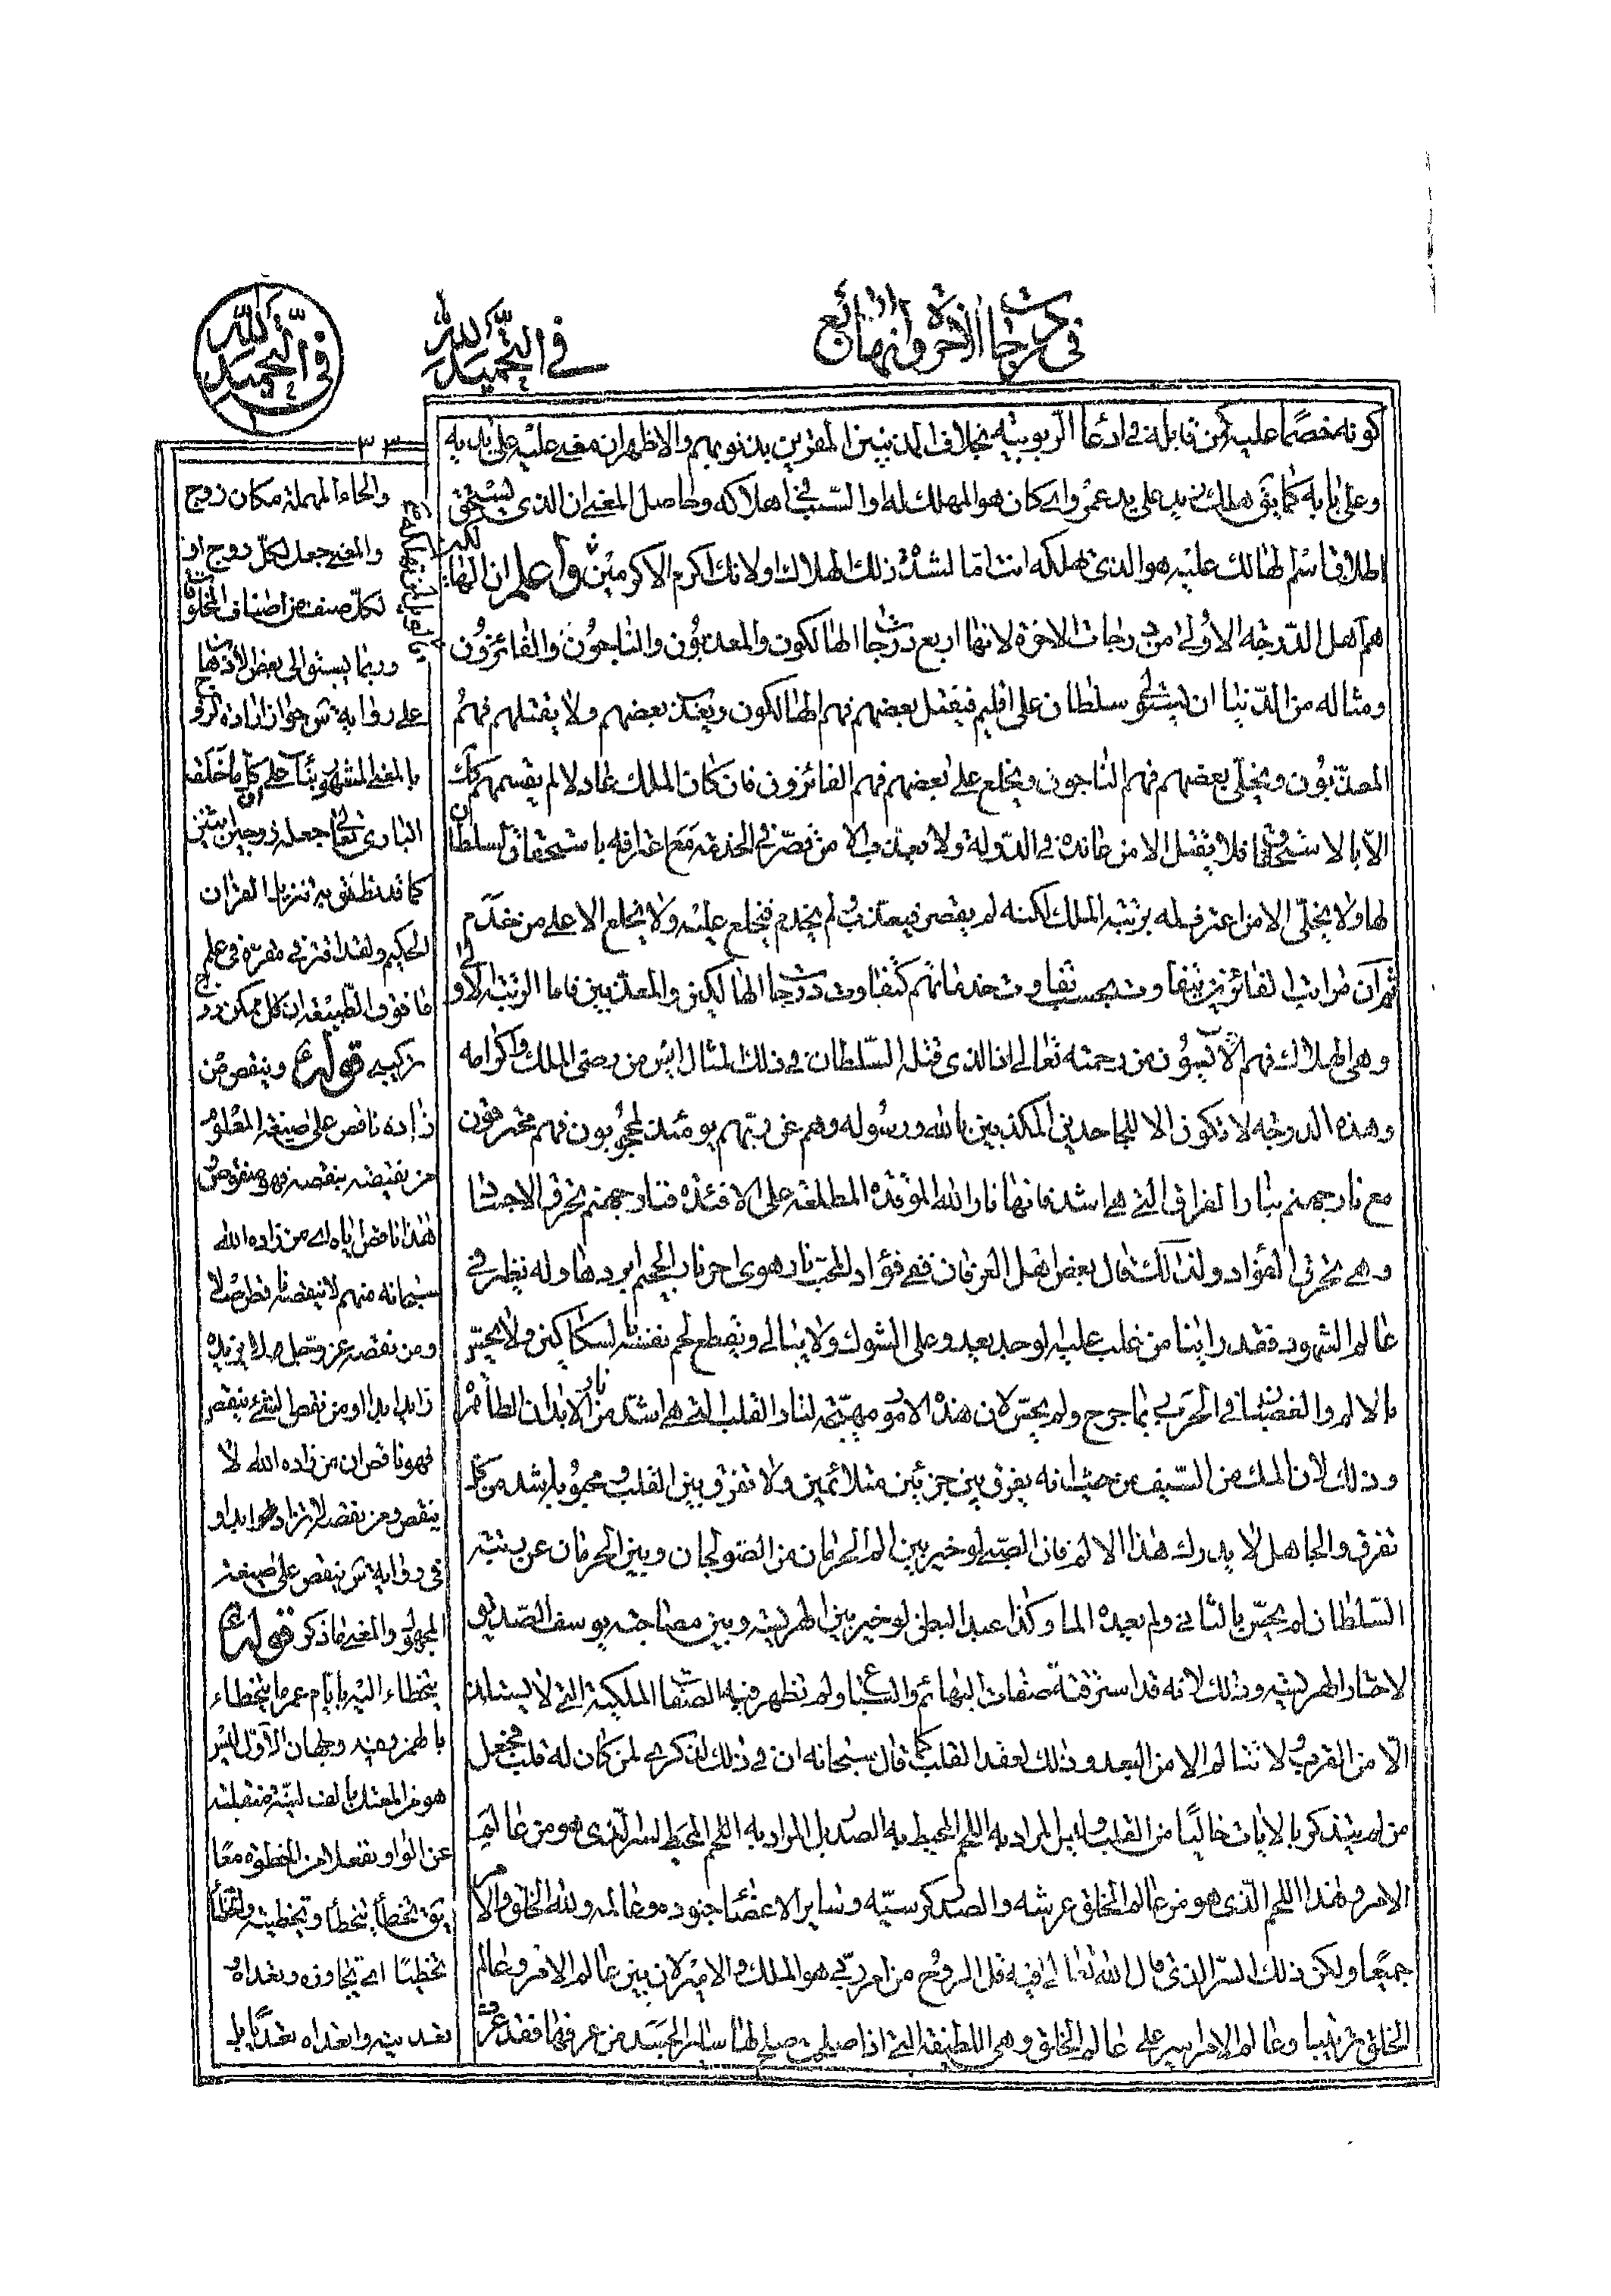 في درجات الاخرة وانها اربع
في التحميد لله
في التحميد لله
٣٣
كونه مخصما عليه كمن قابله في ادعا الربوبيته بخلاف المذنبين المقرين بذنوبهم والاظهر ان معنى عليه على يديه
وعلى بابه كما يق هلك زيد على يد عمرو اي كان هو المهلك له او السبب في اهلاكه وحاصل المعنى ان الذي يستحق
اطلاق اسم الهالك عليه هو الذي تهلكه انت اما لشدة ذلك الهلاك او لانك اكرم الاكرمين واعلم ان الها
هم اهل الدرجه الاولى من درجات الاخرة لانها اربع درجات الهالكون والمعذبون والناجون والفائزون
ومثاله من الدنيا ان يستولى سلطان على اقليم فيقتل بعضهم فهم الهالكون ويعذب بعضهم ولا يقتلهم فهم
المعذبون ويخلي بعضهم فهم الناجون ويخلع على بعضهم فهم الفائزون فان كان الملك عادلا لم يقسمهم كذلك
الا بالاستحقاق فلا يقتل الا من عانده في الدولة ولا يعذب الا من قصر في الخدمة مع اعترافه باستحقاق السلطان
لها ولا يخلى الا من اعترف له برتبه الملك لكنه لم يقصر فيعذب ولم يخدم فيخلع عليه ولا يخلع الا على من خدم
ثم ان مراتب الفائزين تتفاوت بحسب تفاوت خدماتهم كتفاوت درجات الهالكين والمعذبين فاما الرتبه الاولى
وهي الهلاك فهم الآيسون من رحمته تعالى اذ الذي قتله السلطان في ذلك المثال ايس من رضى الملك واكرامه
وهذه الدرجه لا تكون الا للجاحدين المكذبين بالله ورسوله وهم عن ربهم يومئذ لمحجوبون فهم محترقون
مع نار جهنم بنار الفراق التي هي اشد فانها نار الله الموقدة المطلعة على الافئدة فنار جهنم تحرق الاجسا
وهي تحرق الفؤاد ولذلك قال بعض اهل العرفان ففي فؤاد المحب نار هوى احر نار الجحيم ابردها وله نظير في
عالم الشهود فقد راينا من غلب عليه الوجد يعدو على الشوك ولا يبالي ويقطع لحم نفسه بالسكاكين ولا يحس
بالالم والغضبان في الحرب بما جرح ولم يحس لان هذه الامور مهيجة لنار القلب التي هي اشد من نار الابدان الظاهر
وذلك لان الملك من السيف من حيث انه يفرق بين جزئين متلائمين ولا تفرق بين القلب ومحبوبه اشد من كل
تفرق والجاهل لا يدرك هذا الالم فان الصبي لو خير بين الم الحرمان من الصولجان وبين الحرمان عن رتبته
السلطان لم يحس بالثاني ولم يعده الما وكذا عبد البطن لو خير بين الهريسه وبين مصاحبته يوسف الصديق
لاختار الهريسه وذلك لانه قد استرقته صفات البهائم والسباع ولم تظهر فيه الصفات الملكية التي لا يستلذ
الا من القرب ولا تتالم الا من البعد وذلك لفقد القلب كما قال سبحانه ان في ذلك لذكرى لمن كان له قلب فجعل
من لم يتذكر بالايات خاليا من القلب وليس المراد به اللحم المحيط به الصدر بل المراد به اللحم المحيط السر الذي هو من عالم
الامر وهذا اللحم الذي هو من عالم الخلق عرشه والصدر كرسيه وساير الاعضاء جنوده وعالمه ولله الخلق والامر
جميعا ولكن ذلك السر الذي قال الله تعالى فيه قل الروح من امر ربي هو الملك والامير لان بين عالم الامر وعالم
الخلق ترتيبا وعالم الامر امير على عالم الخلق وهي اللطيفة التي اذا صلحت صلح لها ساير الجسد من عرفها فقد عرف
والحاء المهملة مكان زوج
والمعنى جعل لكل روح او
لكل صنف من اصناف المخلوقات
وربما يستوي الى بعض الاذهان
على رواية ش جواز ارادة الزوج
بالمعنى المشهور بناء على كل ما خلقه
الباري تعالى جعله زوجين اثنين
كما قد نطق به تنزيل القران
الحكيم ولقد اقتر في مقره في علم
ما فوق الطبيعة ان كل ممكن زوج
تركيبي قوله ع وينقص من
زاده ناقص على صيغه المعلوم
من نقيضه ينقصه فهو منقوص
هذا ناقص اياه اي من زاده الله
سبحانه منهم لا ينقصه ناقص اصلا
ومن نقصه عز وجل لا يزيده
زايد ابدا او من نقص الشئ ينقص
فهو ناقص اي من زاده الله لا
ينقص ومن نقصه لا يزاد ابدا و
في رواية ش ينقص على صيغة
المجهول والمعنى ما ذكر قوله ع
يتخطاء اليه بايام عمره يتخطاء
بالهمز وفيه وجهان الاول ليس
هو من المعتل بالف لينة منقلبة
عن الواو تفعلا من الخطوة معا
يق تخطأ يتخطأ وتخطيته
تخطيا اي تجاوزه وتعداه و
تعديته واتعداه تعديا بل